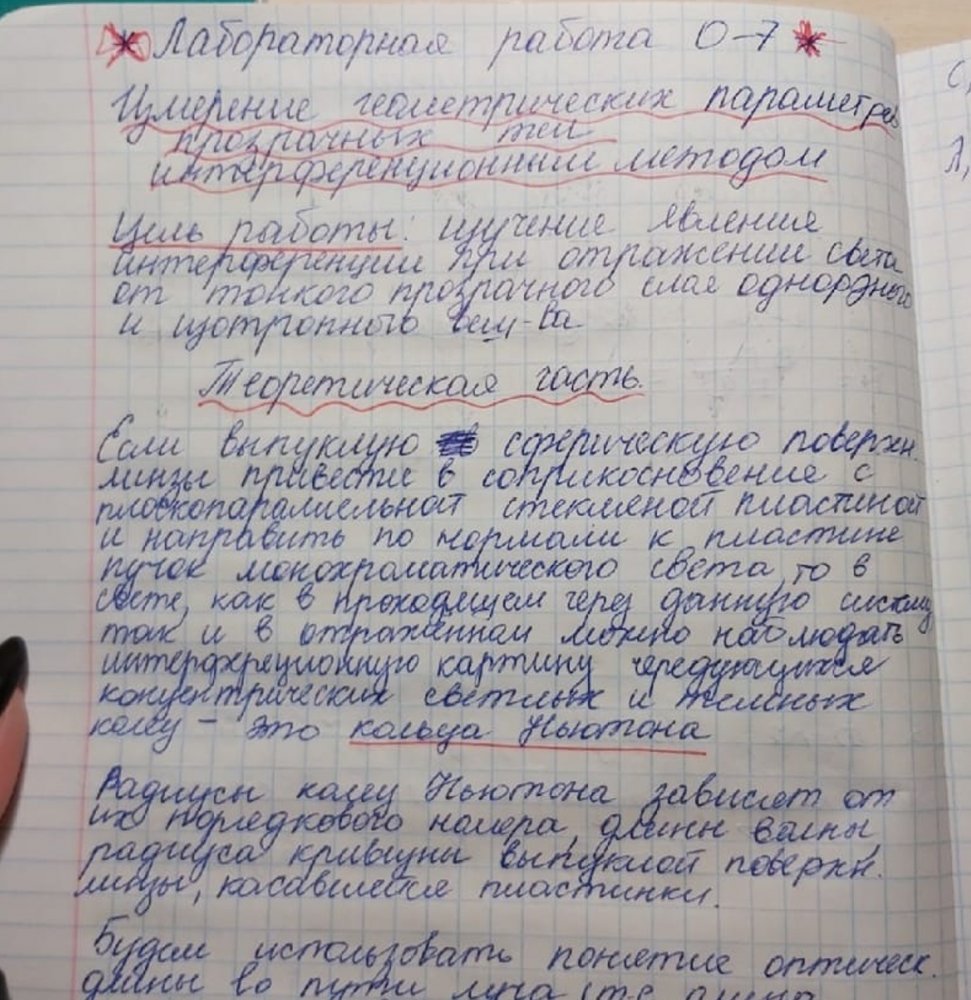 Лабораторная работа О-7
Измерение геометрических параметров
прозрачных тел
интерференционным методом
Цель работы: изучение явления
интерференции при отражении света
от тонкого прозрачного слая однородного
и изотропного вещ-ва
Теоретическая часть.
Если выпуклую сферическую поверхн.
линзы привести в соприкосновение с
плоскопараллельной стекляной пластиной
и направить по нормали к пластине
пучок монохроматического света, то в
свете, как в проходящем через данную систему
так и в отражённом можно наблюдать
интерференционную картину чередующихся
концентрических светлых и тёмных
колец – это кольца Ньютона
Радиусы колец Ньютона зависят от
их порядкового номера, длины волны,
радиуса кривизны выпуклой поверхн.
линзы, касавшейся пластинки.
Будем использовать понятие оптическ.
длины во пути луча (т.е. длина
С,
Л,